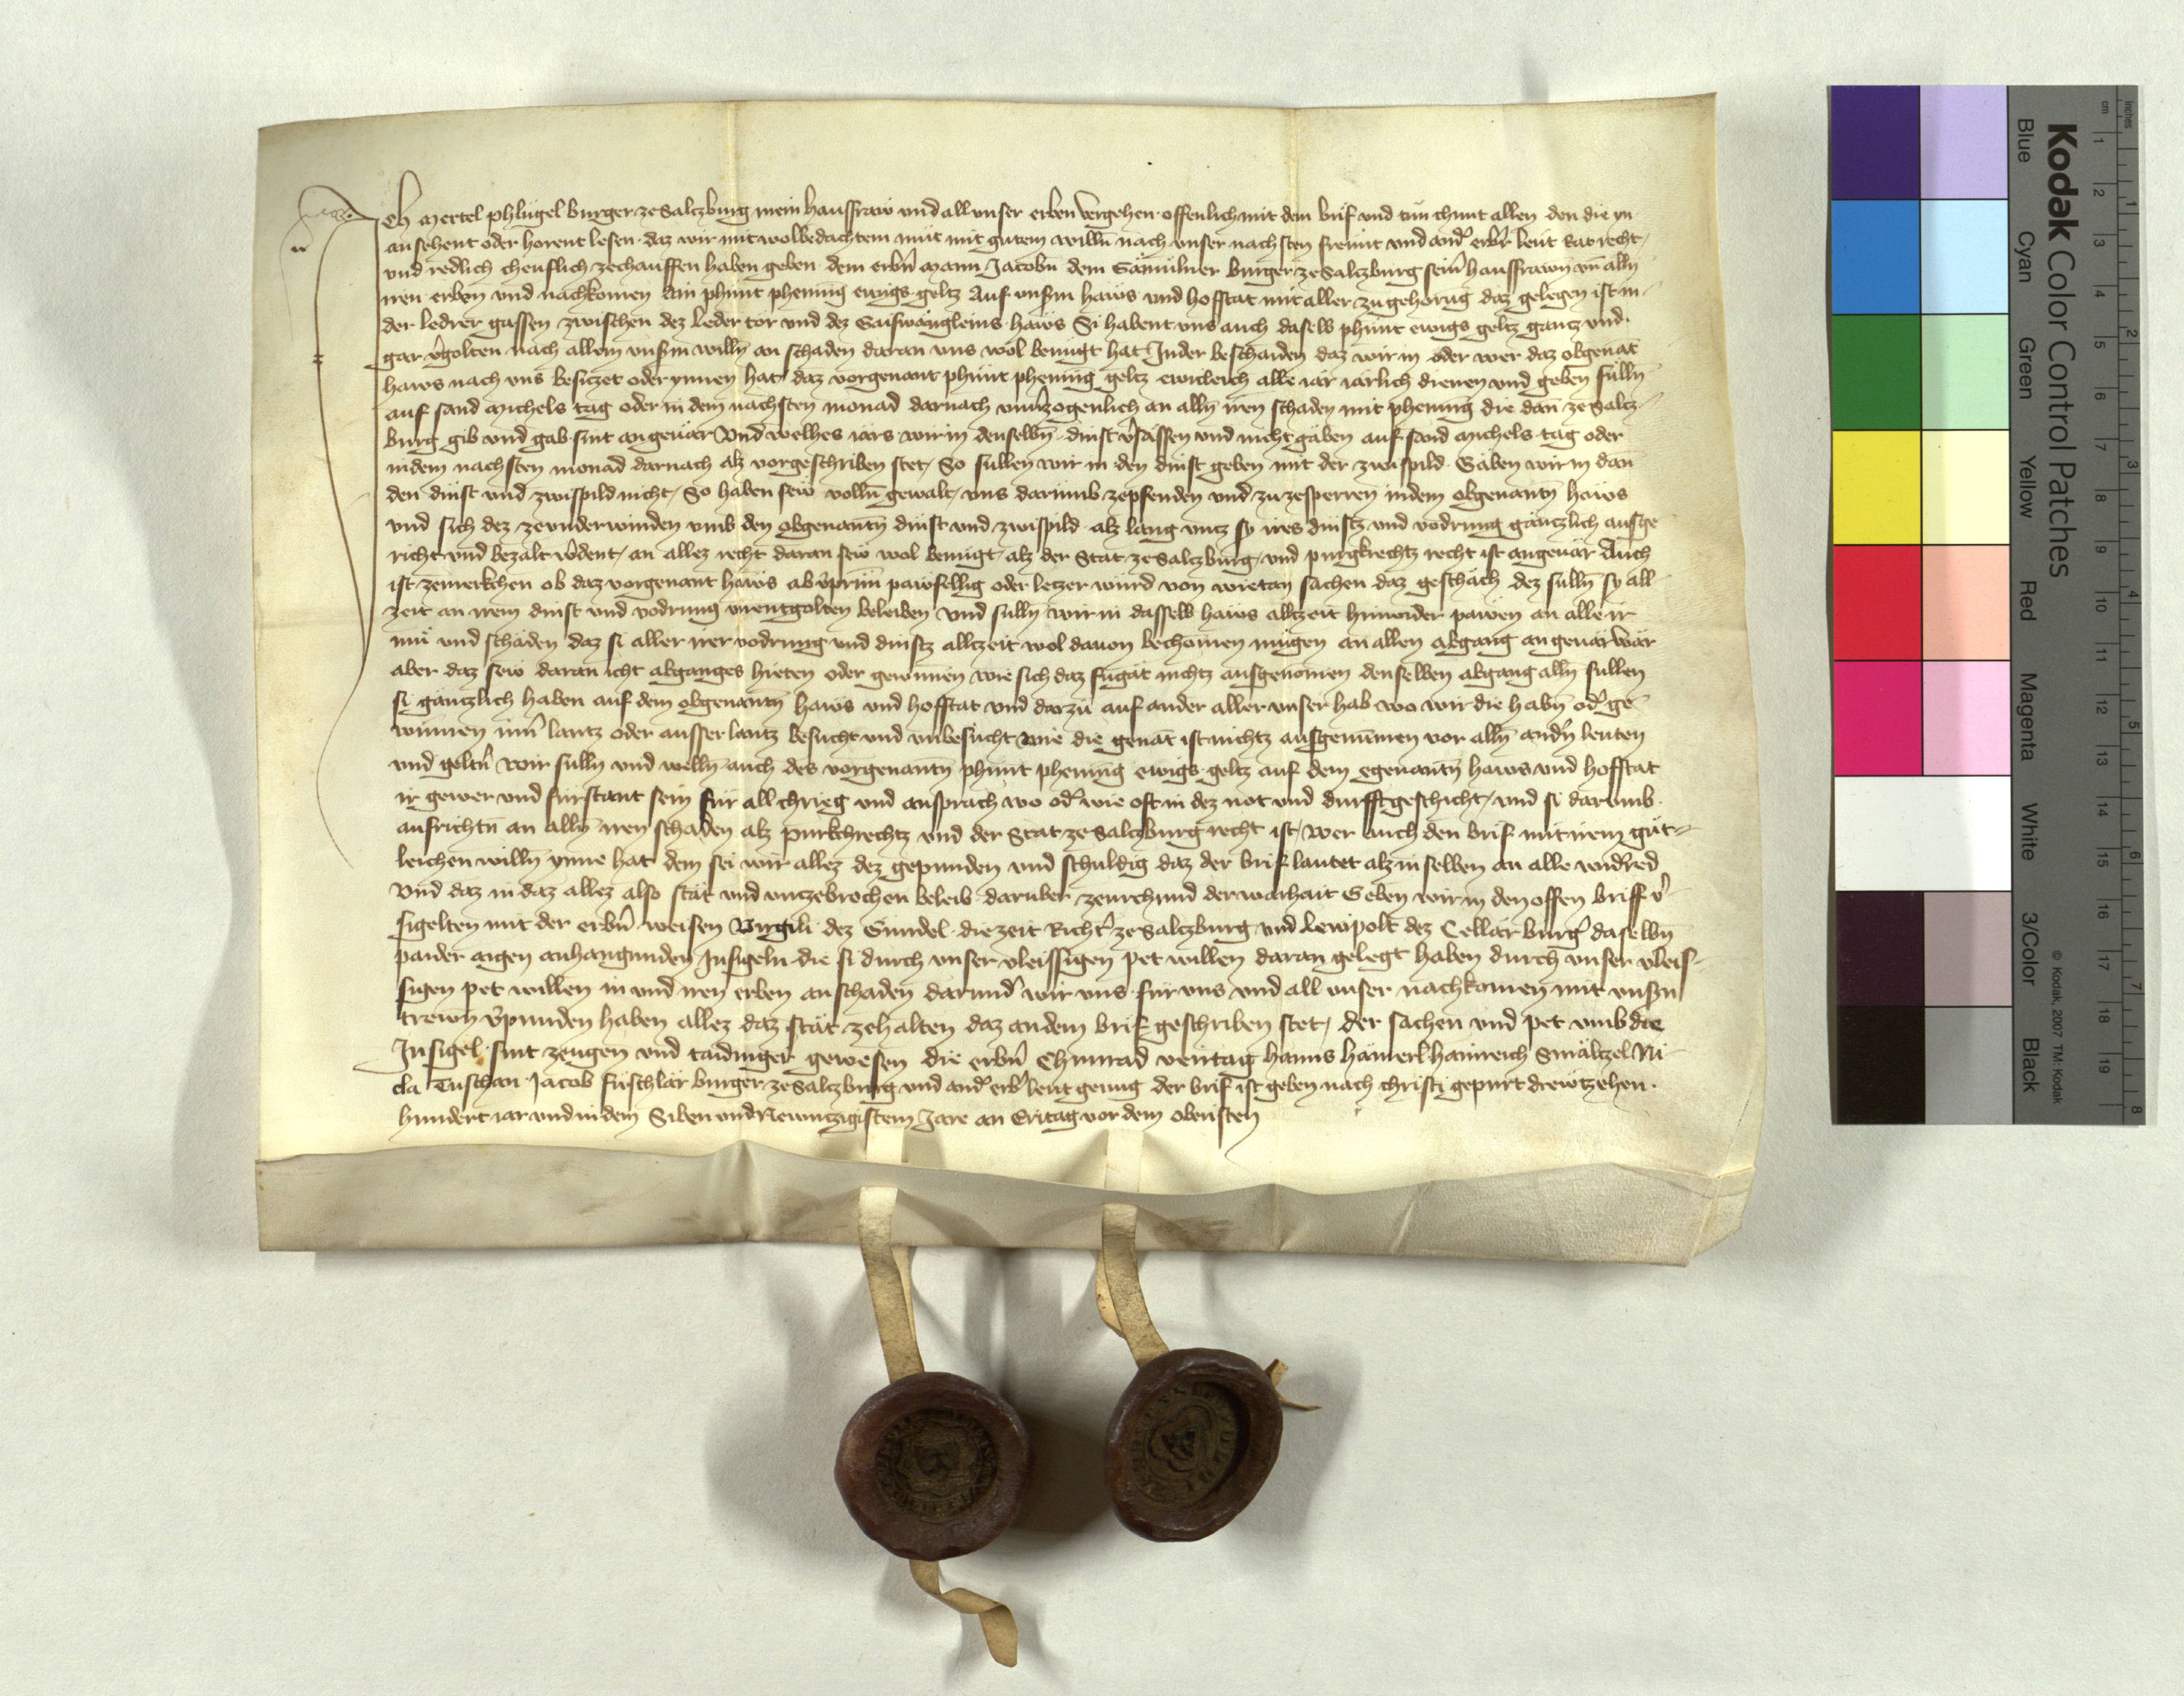 Ich Mertel phlügel burger ze Salczburg mein hausfraw und all unser erben vergehen offenlich mit dem brif und tün chunt allen den die yn
an sehent oder horent lesen daz wir mit wolbedachtem müt mit gutem willn̄ nach unser nachsten freunt und and̾ erb̾r leut Rat recht
und redlich cheuflich ze chauffen haben geben dem erbn̄ mann Jacobn̄ dem Gämülner burger ze Salczburg sein̄ hausfrawn̄ un̄ alln̄
iren erben und nachkomen Ain phunt phening ewigs geltz Auf unsm̄ haws und hofstat mit aller zugehorūg daz gelegen ist in
der ledrer gassen zwischen dez leder tor und dez Gaiswängleins haws Si habent uns auch daselb phunt ewigs geltz gantz und
gar v̾golten nach allem unsm̄ willn̄ an schaden daran uns wol benügt hat In der beschaiden daz wir in oder wer daz obgenāt
haws nach uns besiczet oder ynnen hat daz vorgenant phunt phening geltz ewicleich alle iar iärlich dienen und geben sülln̄
auf sand Michels tag oder in dem nachsten monad darnach unu̾zogenlich an alln̄ iren schaden mit phening die dan̄ ze Salcz
burg gib und gäb sint an geuär Und welhes iars wir in denselbn̄ dinst v̾sässen und nicht gäben auf sand Michels tag oder
in dem nachsten monad darnach alz vorgeschriben stet So sullen wir in den dinst geben mit der zwispild Gäben wir in dan̄
den dinst und zwispild nicht So haben sew volln̄ gewalt uns darumb ze pfenden und zu ze sperren in dem obgenantn̄ haws
und sich dez ze underwinden umb den obgenantn̄ dinst und zwispild alz lang untz sy irs dinstz und vodrung gäntzlich ausge
richt und bezalt w̾dent an allez recht daran sew wol benügt alz der Stat ze Salczburg und purgkrechtz recht ist an geuär Auch
ist ze merkchen ob daz vorgenant haws ab v̾prün̄ pawfellig oder letzer wurd von wie tan sachen daz geschäch dez sulln̄ sy all
zeit an irem dinst und vodrung unentgolten beleiben Und sulln̄ wir in dasselb haws allzeit hinwider pawen an alle ir
mü und schäden daz si aller irer vodrung und dinstz allzeit wol dauon bechomen mügen an allen abgang an geuär Wär
aber daz sew daran icht abganges hieten oder gewunnen wie sich daz fugät nichtz ausgenomen denselben abgang alln̄ sullen
si gäntzlich haben auf dem obgenantn̄ haws und hofstat und darzü auf ander aller unser hab wo wir die habn̄ od̾ ge
winnen inn̾ lantz oder ausser lantz besucht und unbesücht wie die genāt ist nichtz ausgenumen vor alln̄ andn̄ leuten
und geltn̄ Wir sulln̄ und welln̄ auch des vorgenantn̄ phunt phening ewigs geltz auf dem egenantn̄ haws und hofstat
ir gewer und fürstant sein für all chrieg und ansprach wo od̾ wie oft in dez not und durfft geschicht und si darumb
aufrichtn̄ an alln̄ iren schaden alz purkchrechtz und der Stat ze Salczburg recht ist Wer auch den brif mit irem güt
leichen willn̄ ynne hat dem sei wir allez dez gepunden und schuldig daz der brif lautet alz in selben an alle widred
Und daz in daz allez also stät und unzebrochen beleib daruber ze urchund der warhait Geben wir in den offen briff v̾
sigelten mit der erbn̄ weisen Virgili dez Gündel die zeit Richt̾ ze Salczburg und Lewpolt dez Cellär burg̾ daselbn̄
paider aigen anhangunden Insigeln die si durch unser vleissigen pet willen daran gelegt haben durch unser vleis
sigen pet willen in und iren erben an schaden darund̾ wir uns für uns und all unser nachkomen mit unsn̄
trewn v̾punden haben allez daz stät ze halten daz an dem brif geschriben stet der sachen und pet umb die
Insigel sint zeugen und taidinger gewesen die erbn̄ Chunrad venttag hanns hämerl hainreich Smältzel Ni
cla Tuschan Jacob füschlär burger ze Salczburg und and̾ erb̾ leut genug der brif ist geben nach christi gepurt drewtzehen
hundert iar und in dem Siben und Newntzigistem Jare an Eritag vor dem obristen
Kodak Color Control Patches
Blue Cyan Green Yellow Red Magenta White 3/Color Black
© Kodak, 2007 TM: Kodak
inches 1 2 3 4 5 6 7 8
cm 1 2 3 4 5 6 7 8 9 10 11 12 13 14 15 16 17 18 19